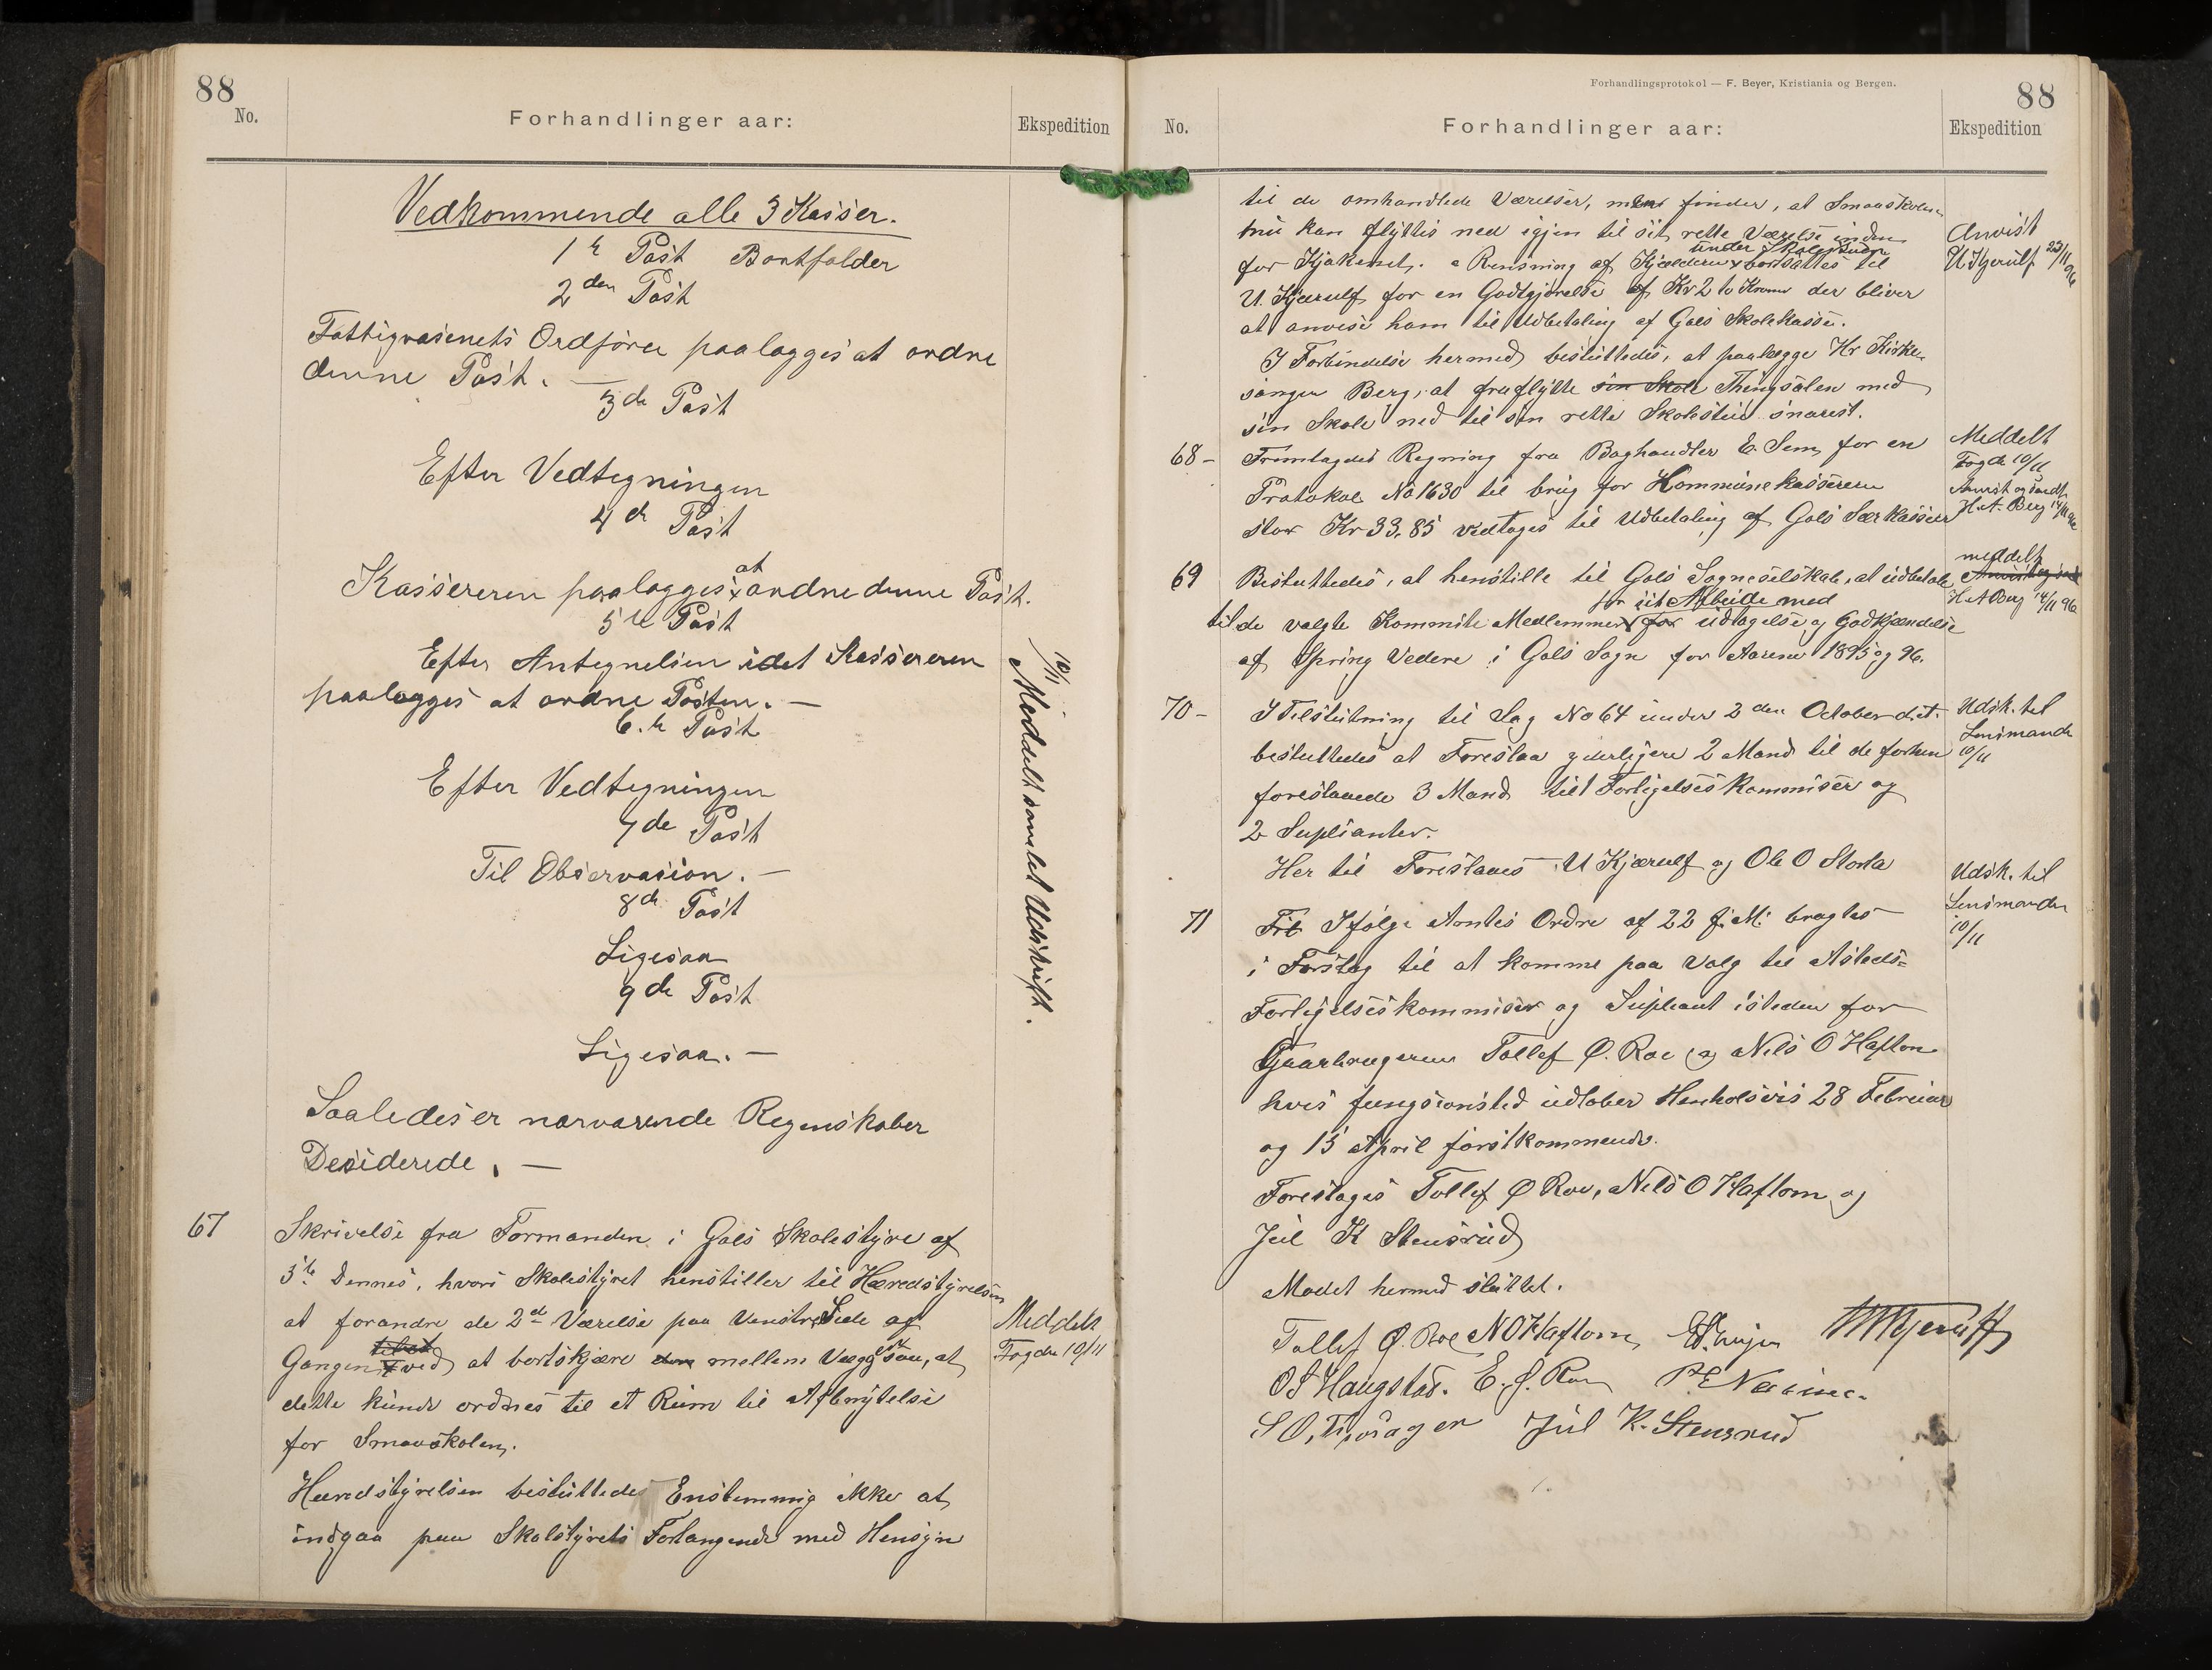 88
No.
Forhandlinger aar:
Ekspedition
Vedkommende alle 3 Kasser.
1ste Post Bortfalder
2den Post
Fattigvæsenets Ordfører paalægges at ordne
denne Post. —
3de Post
Efter Vedtegningen
4de Post
at
Kassereren paalægges x ordne denne Post.
5te Post
Efter Antegnelsen idet Kassereren
paalægges at ordne Posten. —
6.te Post
Efter Vedtegningen
7de Post
Til Observasion. —
8de Post
Ligesaa
9de Post
Ligesaa. —
10/11 Meddelt samlet Udskrift.
Saaledes er nærværende Regnskaber
Desiderede. —
67
Skrivelse fra Formanden i Gols Skolestyre af
5te Dennes, hvori Skolestyret henstiller til Heredstyrelsen
at forandre de 2de Værelse paa Venstre Side af
Gangen ved at bortskjære mellem Væggen saa, at
dette kunde ordnes til et Rum til Afbenytelse
for Smaaskolen.
Meddelt
Fogde 10/11
Heredstyrelsen besluttedes Enstemmig ikke at
indgaa paa Skolstyrets Forlangende med Hensyn
Forhandlingsprotokol — F. Beyer, Kristiania og Bergen.
88
No.
Forhandlinger aar:
Ekspedition
til de omhandlede Værelser, men finder, at Smaaskolen
nu kan flyttes ned igjen til sit rette Værelse inden
under Skolestuen
for Kjøkenet. Rensning af Kjælderen x bortsattes til
U. Kjerulf for en Godtgjørelse af Kr 2 to Kroner der bliver
at anvise ham til Udbetaling af Gols Skolekasse.
Anvist
U Kjerulf 23/11 96
I Forbindelse hermed besluttedes, at paalægge Hr Kirke-
sanger Berg, at fraflytte sin Skole Thingsalen med
sin Skole ned til sin rette Skolestue snarest.
68 -
Fremlagdes Regning fra Boghandler E. Sem, for en
Protokol No 1630 til brug for Kommunekassereren
stor Kr 33,85 vedtoges til Udbetaling af Gols Særkasse
Meddelt
Fogde 10/11
Anvist og sendt
H.A. Berg 14/11 96
69
Besluttedes, at henstille til Gols Sogneselskab, at udbetale
for sit Arbeide med
til de valgte Kommite Medlemmer x for udtagelse og Godkjændelse
af Spring Vedere i Gols Sogn for Aarene 1895 og 96.
meddelt
H A Berg 14/11 96
70 -
I Tilslutning til Sag No 64 under 2den October d.A.
besluttedes at Foreslaa yderligere 2 Mand til de forhen
foreslaaede 3 Mand til Forligelseskommisær og
2 Suplianter.
Her til Foreslaaes U Kjærulf og Ole O Storla
Udsk. til
Lensmanden
10/11
71
Ifølge Amtes Ordre af 22 f.M. bragtes
i Forslag til at komme paa Valg til Asteds=
Forligelseskommisær og Supleant isteden for
Gaarbrugerne Tollef Ø. Roe og Nils O Haftom
hvis fungsionstid udløber Henholsvis 28 Februar
og 15 April førstkommende.
Udsk. til
Lensmanden
10/11
Foreslages Tollef Ø Roe, Nils O Haftom og
Juel K Stensrud
Mødet hermed sluttet.
Tollef Ø. Roe N O Haftom U Kjerulff
O S Haugstad. E. J. Roe
Juel K. Stensrud